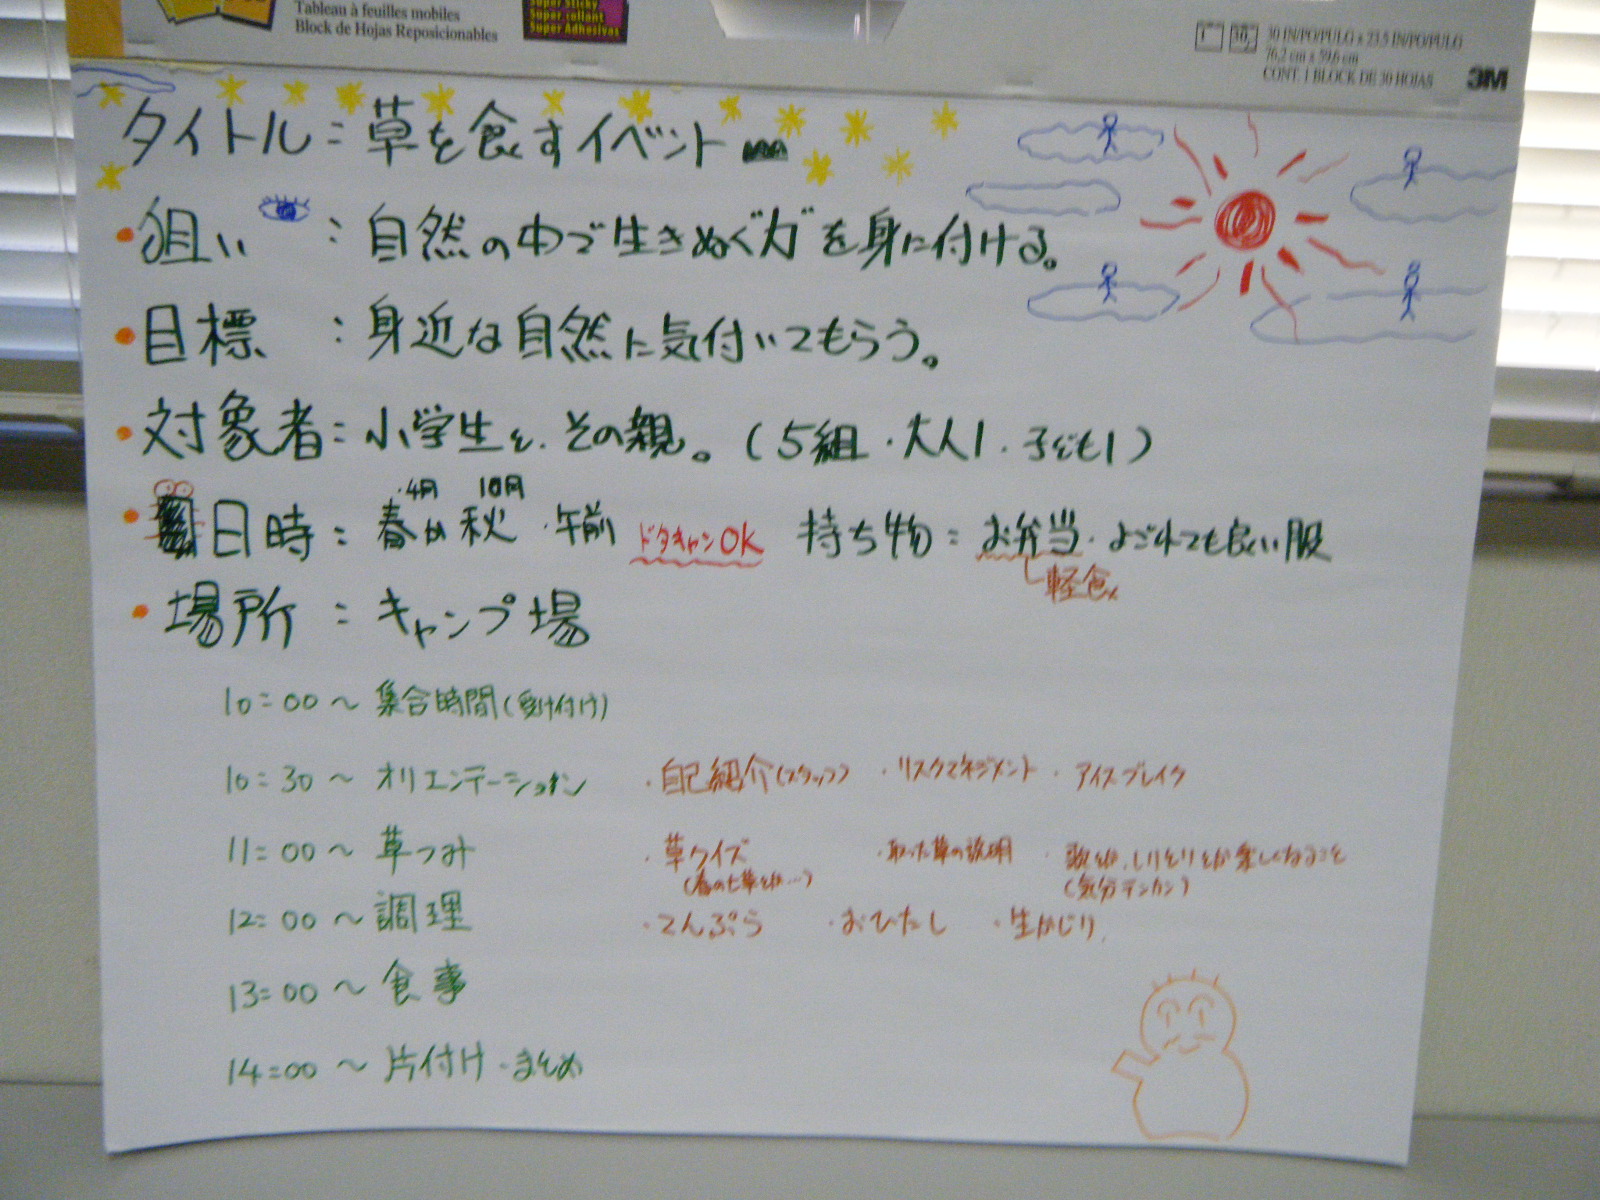 Tableau à feuilles mobiles
Block de Hojas Reposicionables
Super Sticky
Super collant
Super Adhesivas
30 IN/PO/PULG x 23.5 IN/PO/PULG
76,2 cm x 59,6 cm
CONT. 1 BLOCK DE 30 HOJAS
3M
タイトル:草を食すイベント
・狙い:自然の中で生きぬく"力"を身に付ける。
・目標:身近な自然に気付いてもらう。
・対象者:小学生と、その親。(5組・大人1・子ども1)
・4月 10月
・日時:春か秋・午前 ドタキャンOK 持ち物:お弁当・よごれても良い服
軽食
・場所:キャンプ場
10:00〜集合時間(受け付け)
10:30〜オリエンテーション ・自己紹介(スタッフ) ・リスクマネジメント ・アイスブレイク
11:00〜草つみ ・草クイズ ・取った草の説明 ・歌とか、しりとりとか楽しくなること
(春の七草とか…) (気分テンカン)
12:00〜調理 ・てんぷら ・おひたし ・生かじり
13:00〜食事
14:00〜片付け・まとめ